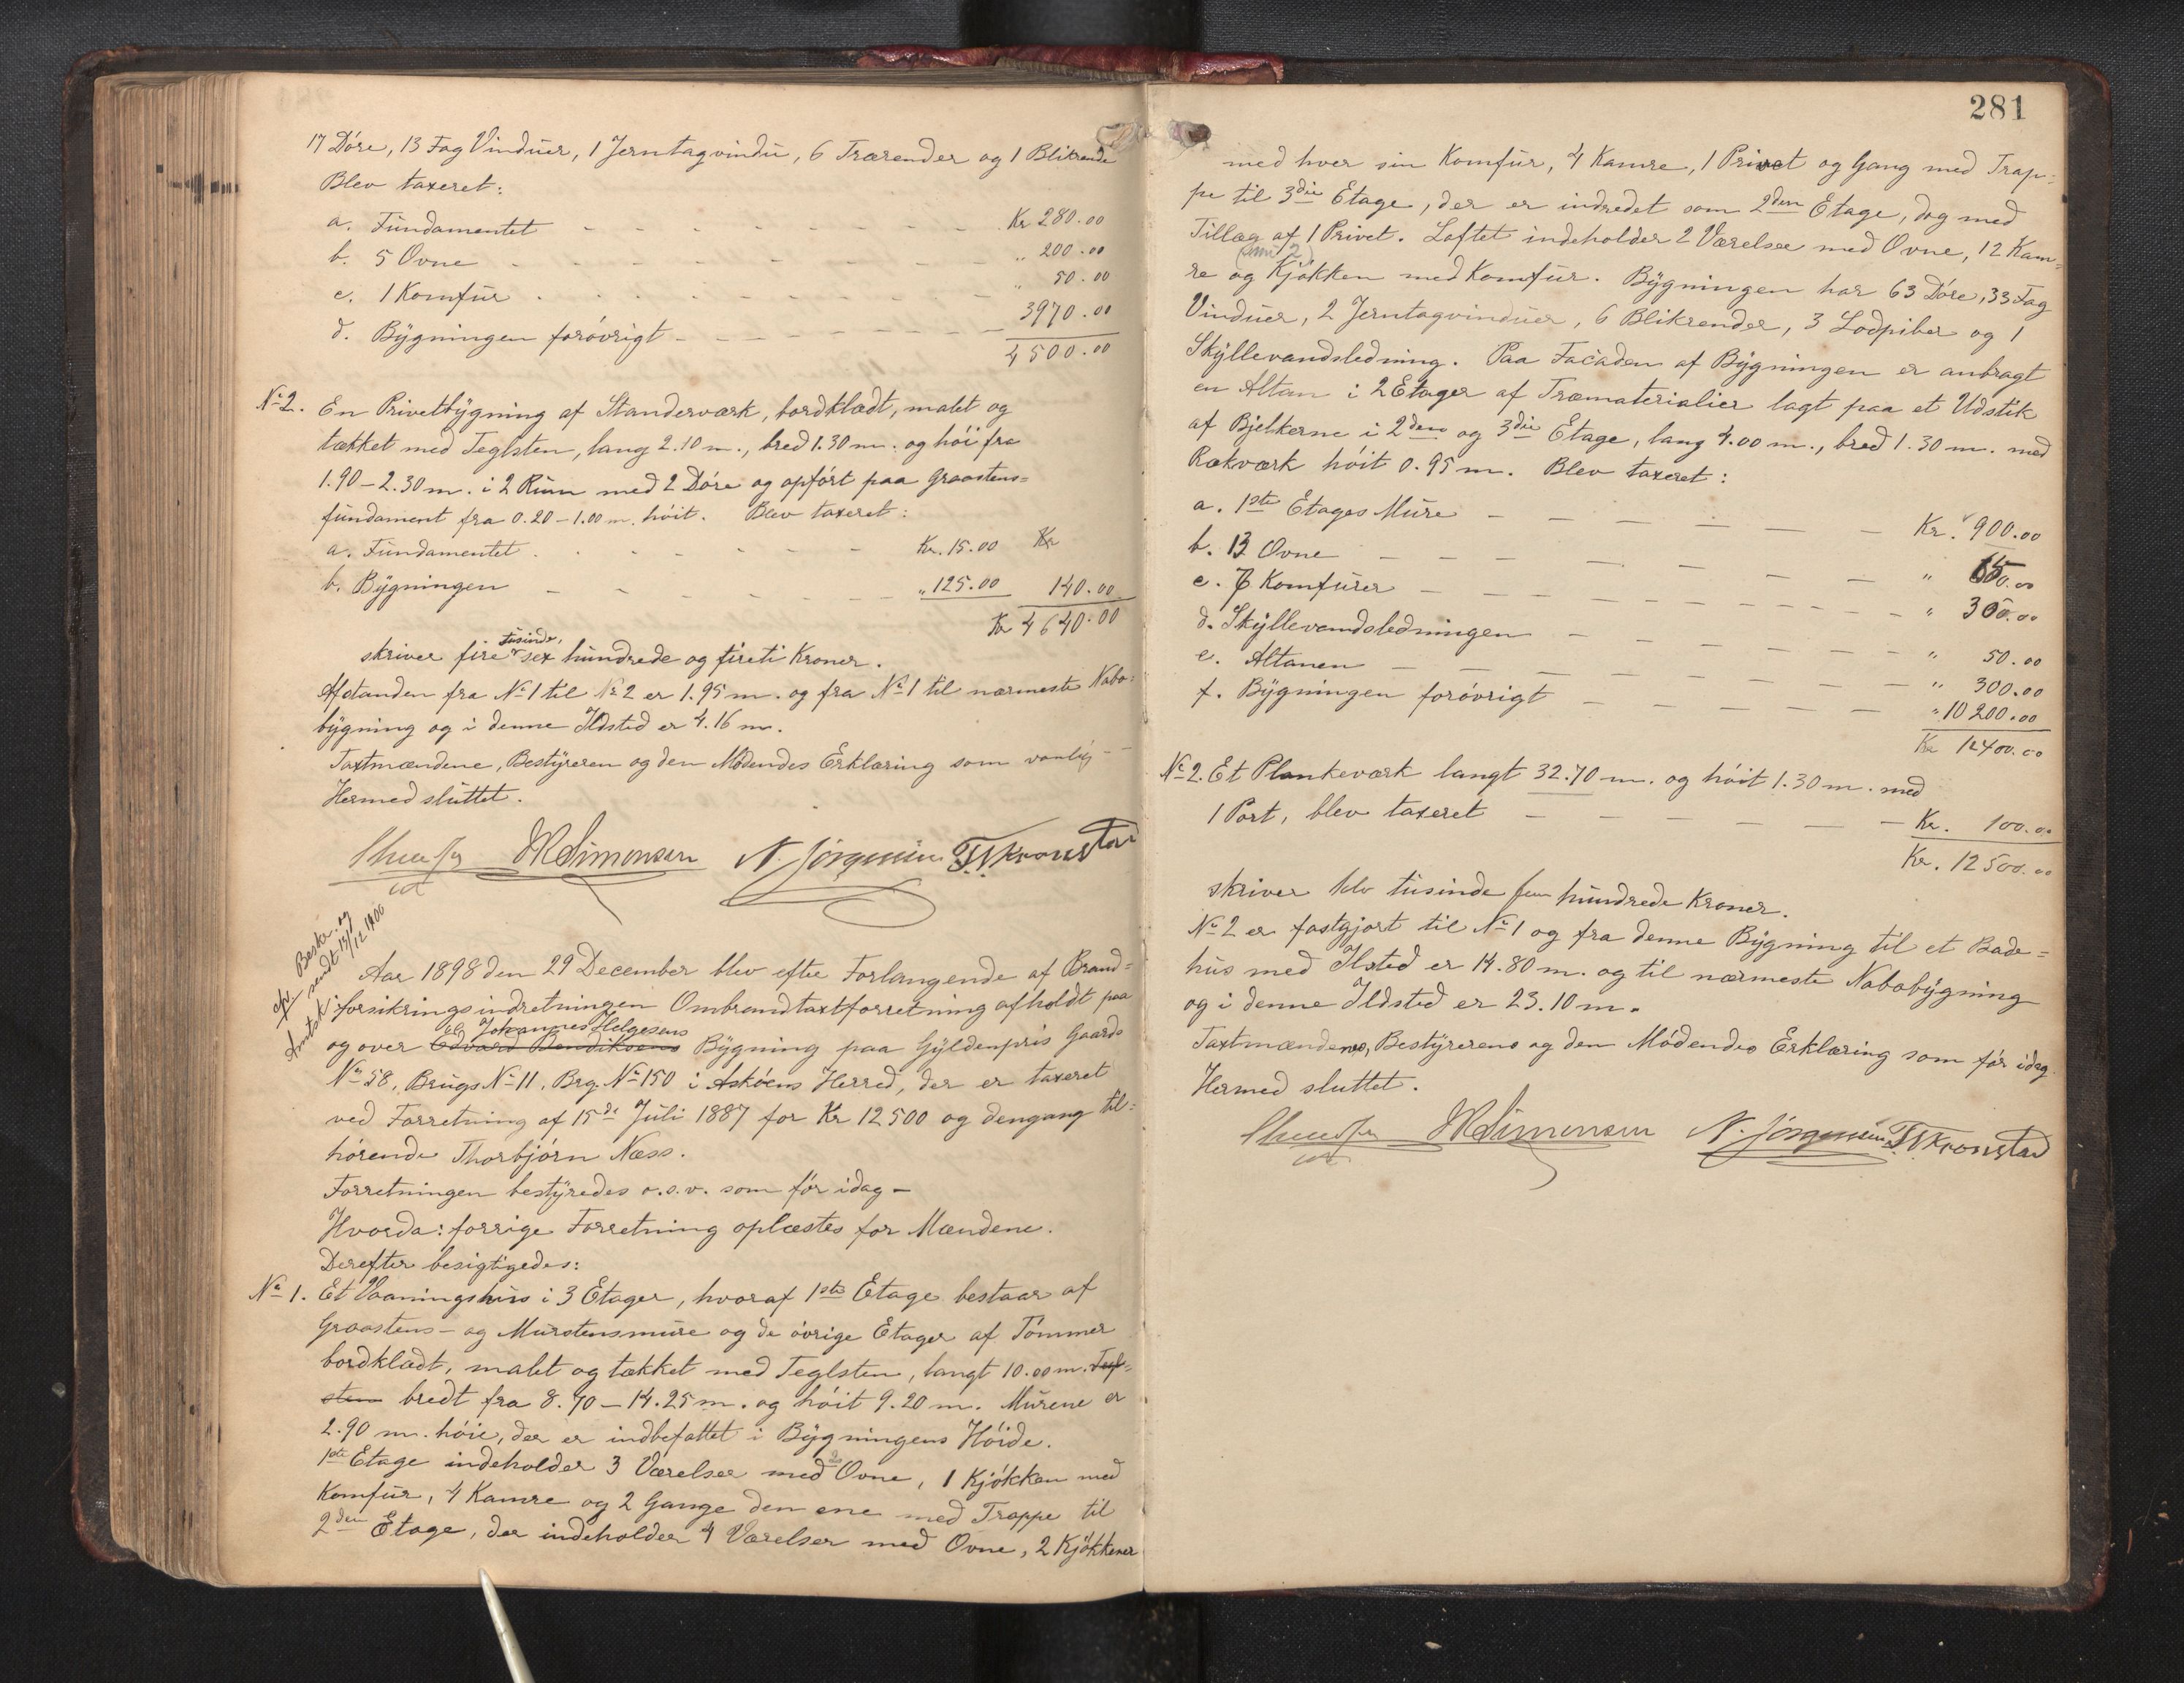 17 Døre, 13 Fag Vinduer, 1 Jerntagvindu, 6 Trærender og 1 Blikrende
Blev taxeret:
a. Fundamentet - - - - - - - Kr 280.00
b. 5 Ovne - - - - - - - " 200.00
c. 1 Komfur - - - - - - - " 50.00
d. Bygningen forøvrigt - - - - - - 3970.00
4500.00
No 2. En Privetbygning af Standerværk, bordklædt, malet og
tækket med Teglsten, lang 2.10 m., bred 1.30 m. og høi fra
1.90 - 2.30 m. i 2 Rum med 2 Døre og opført paa Graastens=
fundament fra 0.20 - 1.00 m. høit. Blev taxeret:
a. Fundamentet - - - - - - Kr. 15.00 Kr
b. Bygningen - - - - - - " 125.00 140.00
Kr 4640.00
tusinde,
skriver fire sex hundrede og fireti Kroner.
Afstanden fra No 1 til No 2 er 1.95 m. og fra No 1 til nærmeste Nabo=
bygning og i denne Ildsted er 4.16 m.
Taxtmændene, Bestyreren og den Mødendes Erklæring som vanlig -
Hermed sluttet.
JRSimonsen N. Jörgensen T. Kronstad
Beskr. og
sendt 13/12 1900
Aar 1898 den 29 December blev efter Forlangende af Brand=
forsikringsindretningen Ombrandtaxtforretning afholdt paa
Johannes Helgesens
og over Edvard Bendiksens Bygning paa Gyldenpris Gaards
No 58, Brugs No 11, Brg. No 150 i Askøens Herred, der er taxeret
ved Forretning af 15de Juli 1887 for Kr 12500 og dengang til=
hørende Thorbjørn Næss.
Forretningen bestyredes o.s.v. som før idag -
Hvorda: forrige Forretning oplæstes for Mændene.
Derefter besigtigedes:
No 1. Et Vaaningshus i 3 Etager, hvoraf 1ste Etage bestaar af
Graastens- og Murstensmure og de øvrige Etager af Tømmer
bordklædt, malet og tækket med Teglsten, langt 10.00 m. Tegl=
sten bredt fra 8.70 - 14.25 m. og høit 9.20 m. Murene er
2.90 m. høie, der er indbefattet i Bygningens Høide.
1ste Etage indeholder 3 Værelser med 2 Ovne, 1 Kjøkken med
Komfur, 4 Kamre og 2 Gange den ene med Trappe til
2den Etage, der indeholder 4 Værelser med Ovne, 2 Kjøkkener
281
med hver sin Komfur, 4 Kamre, 1 Privet og Gang med Trap=
pe til 3die Etage, der er indredet som 2den Etage, dog med
Tillæg af 1 Privet. Loftet indeholder 2 Værelser med Ovne, 12 Kam=
re og Kjøkken med Komfur. Bygningen har 63 Døre, 33 Fag
Vinduer, 2 Jerntagvinduer, 6 Blikrender, 3 Lodpiber og 1
Skyllevandsledning. Paa Facaden af Bygningen er anbragt
en Altan i 2 Etager af Træmaterialier lagt paa et Udstik
af Bjelkerne i 2den og 3die Etage, lang 4.00 m., bred 1.30 m. med
Rækværk høit 0.95 m. Blev taxeret:
a. 1ste Etages Mure - - - - - - Kr. 900.00
b. 13 Ovne - - - - - - - " 650.00
c. 6 Komfurer - - - - - - - " 300.00
d. Skyllevandsledningen - - - - - " 50.00
e. Altanen - - - - - - - " 300.00
f. Bygningen forøvrigt - - - - - " 10200.00
Kr 12400.00
No 2. Et Plankeværk langt 32.70 m. og høit 1.30 m. med
1 Port, blev taxeret - - - - - - Kr. 100.00
Kr. 12500.00
skriver tolv tusinde fem hundrede Kroner.
No 2 er fastgjort til No 1 og fra denne Bygning til et Bade=
hus med Ilsted er 14.80 m. og til nærmeste Nabobygning
og i denne Ildsted er 23.10 m.
Taxtmændenes, Bestyrerens og den Mødendes Erklæring som før idag.
Hermed sluttet.
JRSimonsen N. Jörgensen T. Kronstad